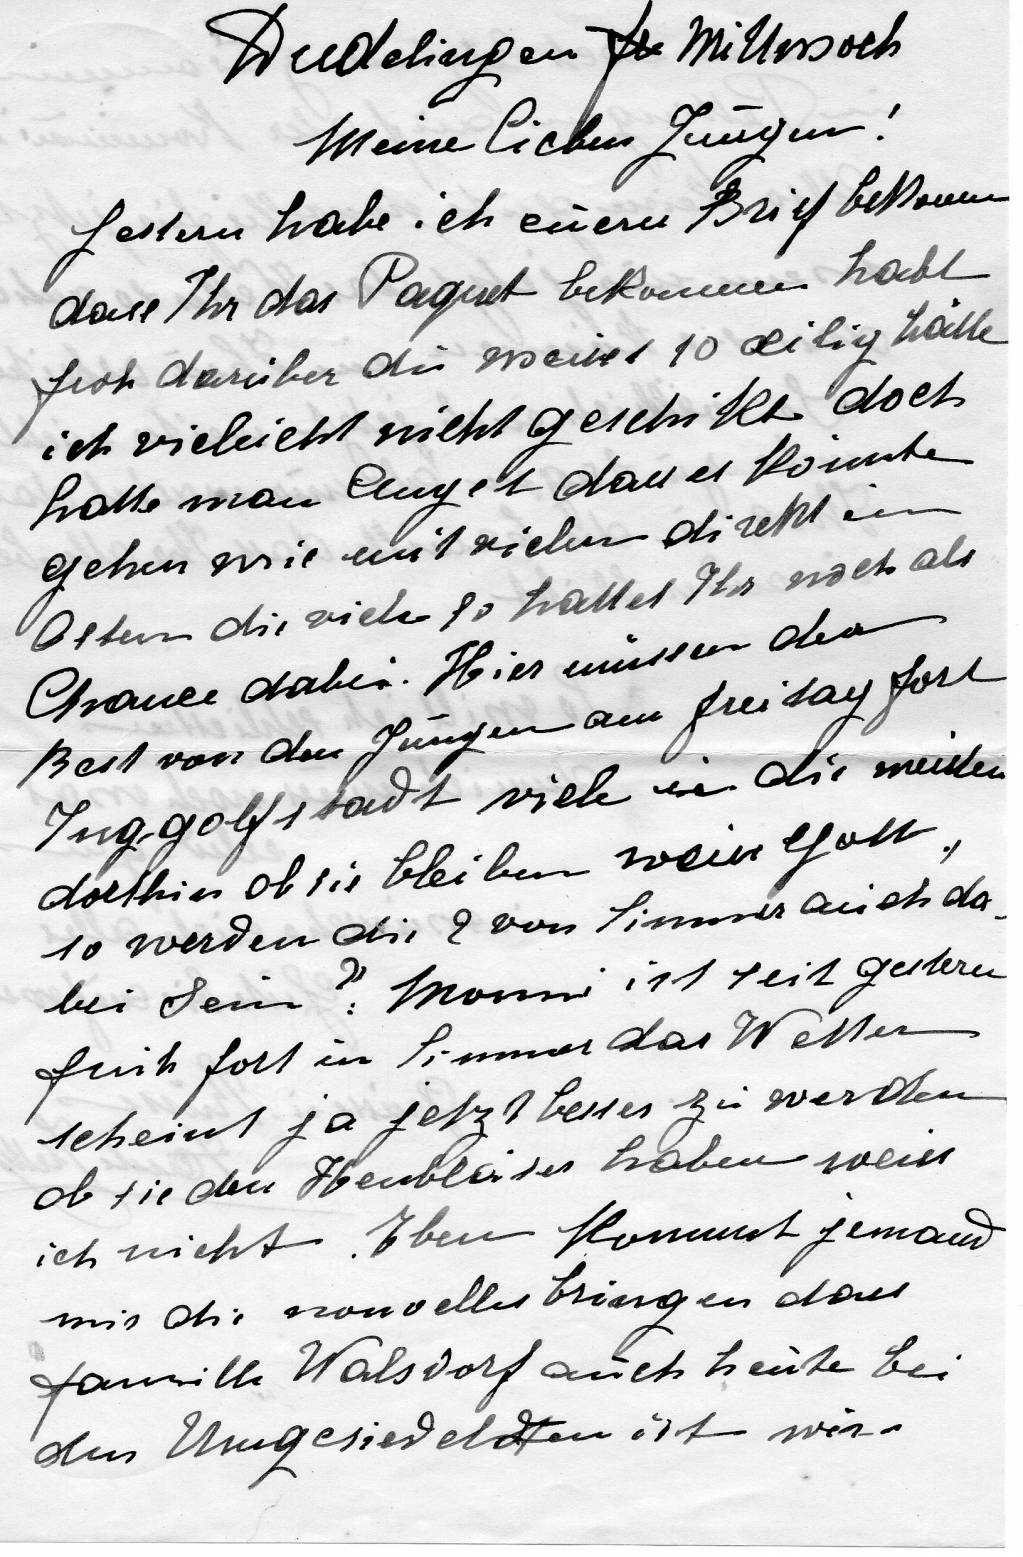 Düdelingen Mittwoch
Meine lieben Jungen!
Gestern habe ich euern Brief bekommen
dass Ihr das Paquet bekommen habt
froh darüber die 10 hätte
ich vieleicht nicht geschikt doch
hatte man Angst dass es könnte
gehen wie mit vielen direkt im
Osten die viele so hattet Ihr noch als
Chance dabei. Hier müssen den
Rest von den Jungen am freitag fort
Inggolfstadt viele in die meisten
dorthin ob sie bleiben weiss Gott,
so werden die 2 von Simmer auch da-
bei Sein?. Monni ist seit gestern
früh fort in Simmer das Wetter
scheint ja jetzt besser zu werden
ob sie den haben weiss
ich nicht. Eben kommt jemand
mir die nouvelles bringen dass
familli Walsdorf auch heute bei
den Umgesiedelten ist wir